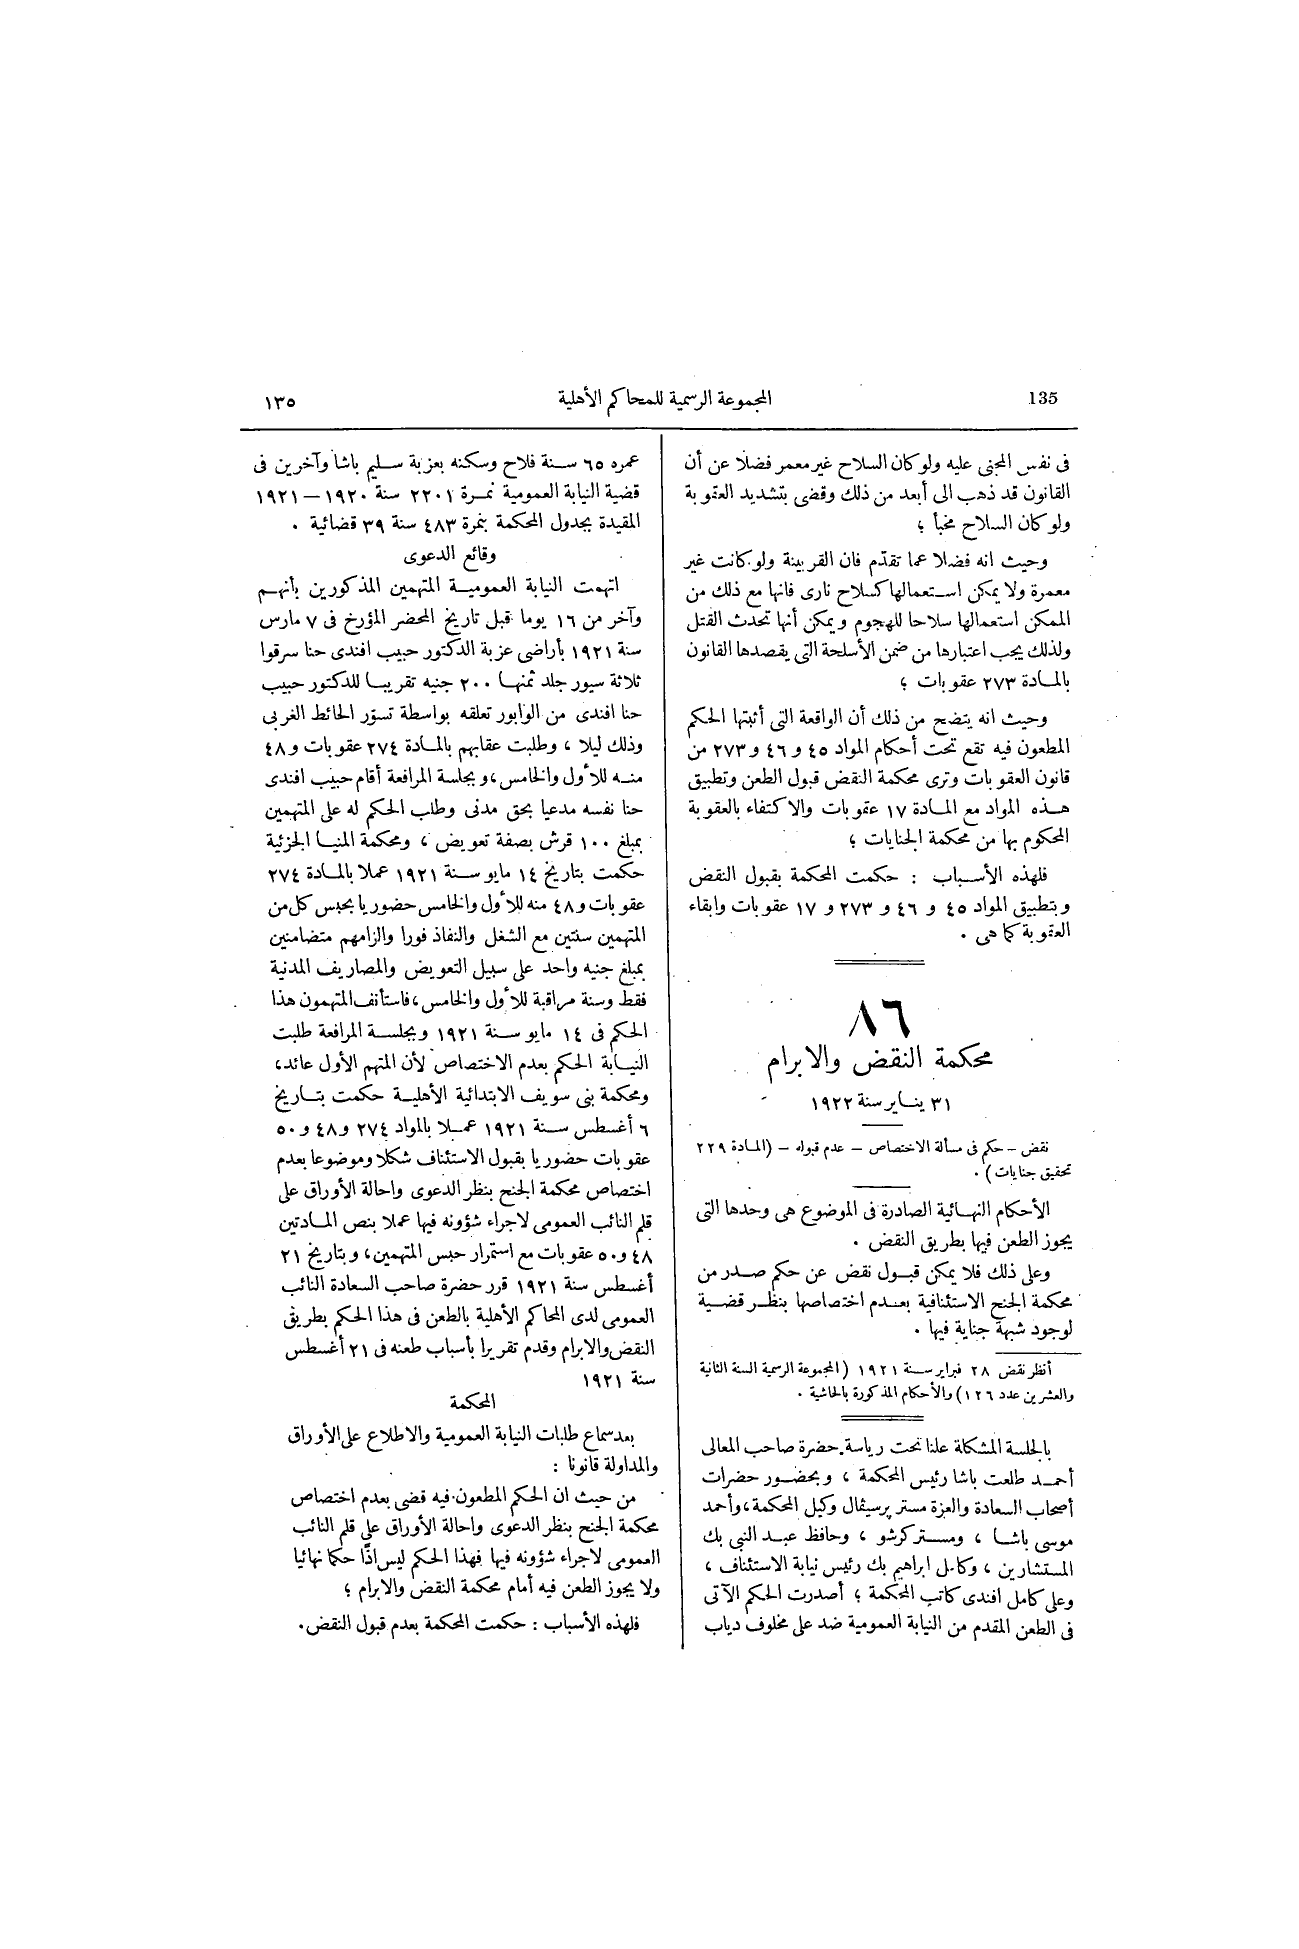 135
المجموعة الرسمية للمحاكم الأهلية
١٣٥
فى نفس المجنى عليه ولو كان السلاح غير معمر فضلا عن أن
القانون قد ذهب الى أبعد من ذلك وقضى بتشديد العقوبة
ولو كان السلاح مخبأ ؛
وحيث انه فضلا عما تقدّم فان القربينة ولو كانت غير
معمرة ولا يمكن استعمالها كسلاح نارى فانها مع ذلك من
الممكن استعمالها سلاحا للهجوم ويمكن أنها تحدث القتل
ولذلك يجب اعتبارها من ضمن الأسلحة التى يقصدها القانون
بالمادة ٢٧٣ عقوبات ؛
وحيث انه يتضح من ذلك أن الواقعة التى أثبتها الحكم
المطعون فيه تقع تحت أحكام المواد ٤٥ و ٤٦ و ٢٧٣ من
قانون العقوبات وترى محكمة النقض قبول الطعن وتطبيق
هذه المواد مع المادة ١٧ عقوبات والاكتفاء بالعقوبة
المحكوم بها من محكمة الجنايات ؛
فلهذه الأسباب : حكمت المحكمة بقبول النقض
وبتطبيق المواد ٤٥ و ٤٦ و ٢٧٣ و ١٧ عقوبات وابقاء
العقوبة كما هى .
٨٦
محكمة النقض والابرام
٣١ يناير سنة ١٩٢٢
نقض – حكم فى مسألة الاختصاص – عدم قبوله – (المادة ٢٢٩
تحقيق جنايات) .
الأحكام النهائية الصادرة فى الموضوع هى وحدها التى
يجوز الطعن فيها بطريق النقض .
وعلى ذلك فلا يمكن قبول نقض عن حكم صدر من
محكمة الجنح الاستئنافية بعدم اختصاصها بنظر قضية
لوجود شبهة جناية فيها .
أنظر نقض ٢٨ فبراير سنة ١٩٢١ (المجموعة الرسمية السنة الثانية
والعشرين عدد ١٢٦) والأحكام المذكورة بالحاشية .
بالجلسة المشكلة علنا تحت رياسة حضرة صاحب المعالى
أحمد طلعت باشا رئيس المحكمة ، وبحضور حضرات
أصحاب السعادة والعزة مستر پرسيڤال وكيل المحكمة، وأحمد
موسى باشا ، ومستر كرشو ، وحافظ عبد النبى بك
المستشارين ، وكامل ابراهيم بك رئيس نيابة الاستئناف ،
وعلى كامل افندى كاتب المحكمة ؛ أصدرت الحكم الآتى
فى الطعن المقدم من النيابة العمومية ضد على مخلوف دياب
عمره ٦٥ سنة فلاح وسكنه بعزبة سليم باشا وآخرين فى
قضية النيابة العمومية نمرة ٢٢٠١ سنة ١٩٢٠–١٩٢١
المقيدة بجدول المحكمة بنمرة ٤٨٣ سنة ٣٩ قضائية .
وقائع الدعوى
اتهمت النيابة العمومية المتهمين المذكورين بأنهم
وآخر من ١٦ يوما قبل تاريخ المحضر المؤرخ فى ٧ مارس
سنة ١٩٢١ بأراضى عزبة الدكتور حبيب افندى حنا سرقوا
ثلاثة سيور جلد ثمنها ٢٠٠ جنيه تقريبا للدكتور حبيب
حنا افندى من الوابور تعلقه بواسطة تسوّر الحائط الغربى
وذلك ليلا ، وطلبت عقابهم بالمادة ٢٧٤ عقوبات و٤٨
منه للأول والخامس، وبجلسة المرافعة أقام حبيب افندى
حنا نفسه مدعيا بحق مدنى وطلب الحكم له على المتهمين
بمبلغ ١٠٠ قرش بصفة تعويض ، ومحكمة المنيا الجزئية
حكمت بتاريخ ١٤ مايو سنة ١٩٢١ عملا بالمادة ٢٧٤
عقوبات و٤٨ منه للأول والخامس حضوريا بحبس كل من
المتهمين سنتين مع الشغل والنفاذ فورا والزامهم متضامنين
بمبلغ جنيه واحد على سبيل التعويض والمصاريف المدنية
فقط وسنة مراقبة للأول والخامس، فاستأنف المتهمون هذا
الحكم فى ١٤ مايو سنة ١٩٢١ وبجلسة المرافعة طلبت
النيابة الحكم بعدم الاختصاص لأن المتهم الأول عائد،
ومحكمة بنى سويف الابتدائية الأهلية حكمت بتاريخ
٦ أغسطس سنة ١٩٢١ عملا بالمواد ٢٧٤ و٤٨ و٥٠
عقوبات حضوريا بقبول الاستئناف شكلا وموضوعا بعدم
اختصاص محكمة الجنح بنظر الدعوى واحالة الأوراق على
قلم النائب العمومى لاجراء شؤونه فيها عملا بنص المادتين
٤٨ و٥٠ عقوبات مع استمرار حبس المتهمين، وبتاريخ ٢١
أغسطس سنة ١٩٢١ قرر حضرة صاحب السعادة النائب
العمومى لدى المحاكم الأهلية بالطعن فى هذا الحكم بطريق
النقض والابرام وقدم تقريرا بأسباب طعنه فى ٢١ أغسطس
سنة ١٩٢١
المحكمة
بعد سماع طلبات النيابة العمومية والاطلاع على الأوراق
والمداولة قانونا :
من حيث ان الحكم المطعون فيه قضى بعدم اختصاص
محكمة الجنح بنظر الدعوى واحالة الأوراق على قلم النائب
العمومى لاجراء شؤونه فيها فهذا الحكم ليس اذًا حكما نهائيا
ولا يجوز الطعن فيه أمام محكمة النقض والابرام ؛
فلهذه الأسباب : حكمت المحكمة بعدم قبول النقض.